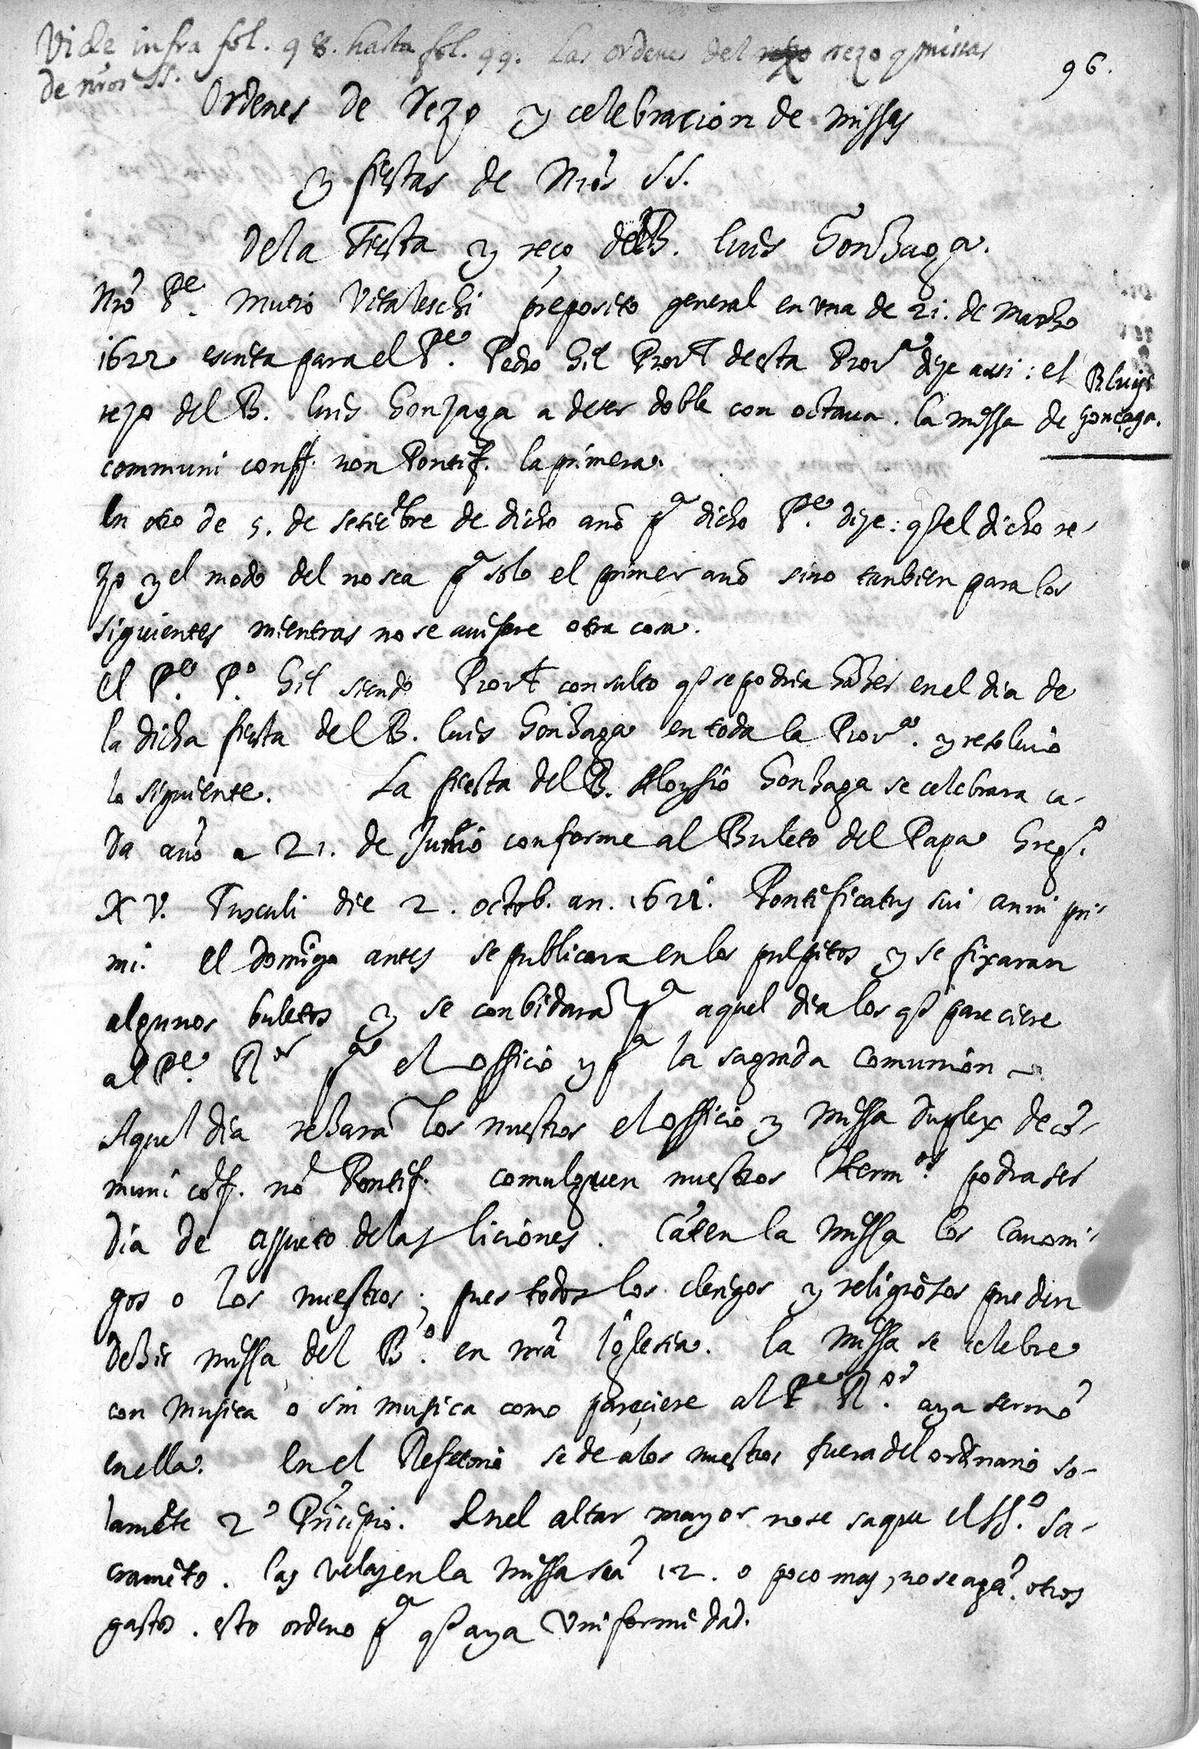 Vide infra fol. 98. hasta fol. 99. las ordenes del rezo y missas
de nros SS.
96.
Ordenes de rezo y celebracion de missas
y fiestas de Nros SS.
Dela Fiesta y reço del B. Luis Gonzaga.
Nro Pe. Mutio Vitaleschi preposito general en una de 21. de Março
1622 escrita para el Pe. Pedro Gil Provl desta Prova dize assi: el
B Luys
Gonçaga.
rezo del B. Luis Gonzaga a de ser doble con octava. la missa de
communi conff. non Pontif. la primera.
En otro de 5. de setiēbre de dicho año pa dicho Pe. dize: q̄ el dicho re-
zo y el modo del no sea pa solo el primer año sino tanbien para los
siguientes mientras no se avisare otra cosa.
El Pe. Po. Gil siendo Provl consulto q̄ se podria hazer en el dia de
la dicha fiesta del B. Luis Gonzaga en toda la Prova. y resolvio
lo siguiente. La fiesta del B. Aloysio Gonzaga se celebrara ca-
da año a 21. de Junio conforme al Buleto del Papa Grego.
XV. Tusculi die 2. octob. an. 1621. Pontificatus sui anni pri-
mi. el domingo antes se publicara en los pulpitos y se fixaran
algunos buletos y se conbidarā pa aquel dia los q̄ pareciere
al Pe. Ror pa el officio y pa la sagrada comunion
Aquel dia rezarā los nuestros el officio y missa duplex de cō-
muni cōf. nō Pontif. comulguen nuestros Hermos. podra ser
dia de assueto de las liciones. Cātē la missa los Canoni-
gos o los nuestros; pues todos los clerigos y religiosos pueden
dezir missa del Bo. en nra Iglesia. la missa se celebre
con musica o sin musica como pareciere al Pe Ror. aya sermō
en ella. En el Refetorio se de a los nuestros fuera del ordinario so-
lamēte 2o Principio. En el altar mayor no se saque el SSo. Sa-
cramēto. las velas en la missa seā 12. o poco mas, no se agā otros
gastos. esto ordeno pa q̄ aya Uniformidad.